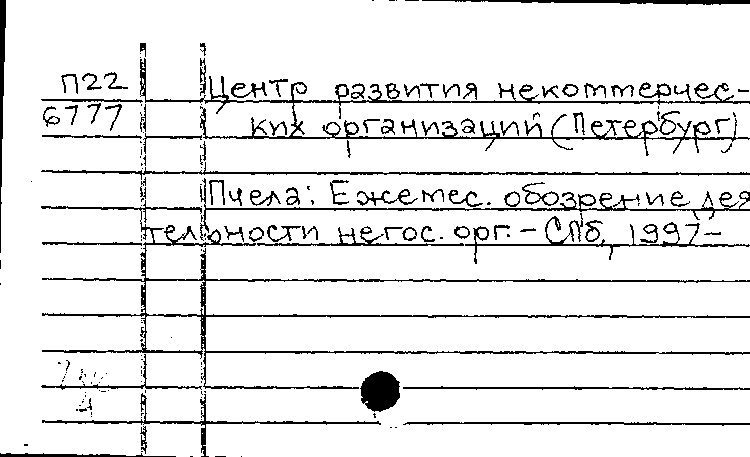 П22
6777
Центр развития некоммерчес-
ких организаций (Петербург)
Пчела: Ежемес. обозрение дея
тельности негос. орг. – СПб, 1997–